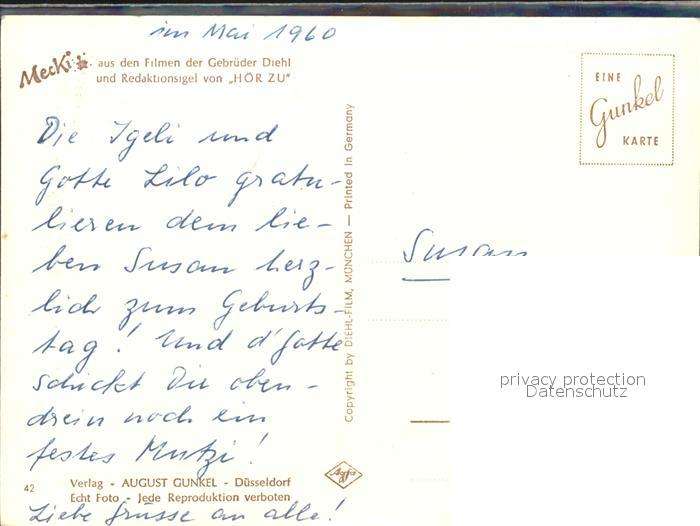 im Mai 1960
Mecki aus den Filmen der Gebrüder Diehl
und Redaktionsigel von „HÖR ZU"
EINE
Gunkel
KARTE
Die Igeli und
Gotte Lilo gratu-
lieren dem lie-
ben Susan herz-
lich zum Geburts-
tag! Und d'Gotte
schickt Dir oben-
drein noch ein
festes Muntzi!
Liebe Grüsse an alle!
Copyright by DIEHL-FILM, MÜNCHEN — Printed in Germany
Susan
privacy protection
Datenschutz
Agfa
42
Verlag - AUGUST GUNKEL - Düsseldorf
Echt Foto - Jede Reproduktion verboten